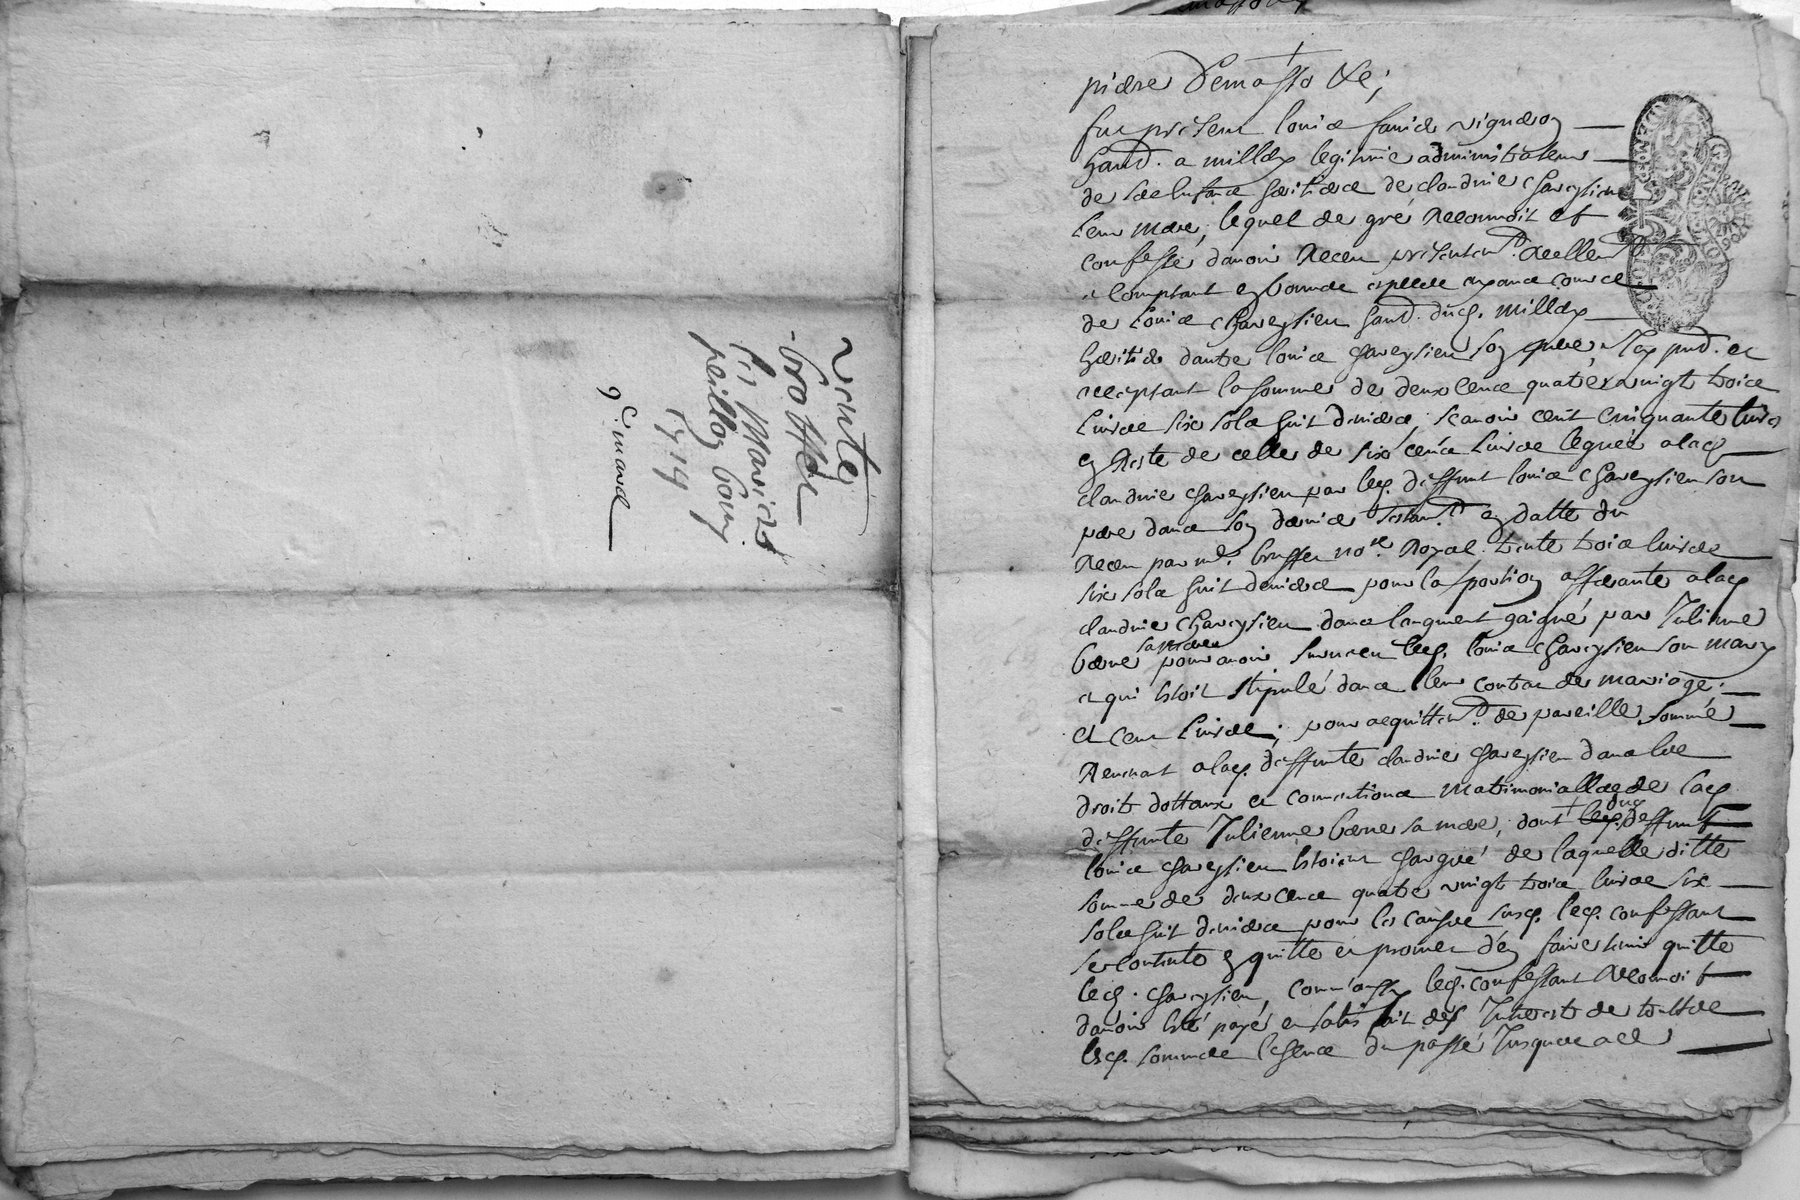 vente
brosser
les mariés
1719
9e. mard
pierre demasso &c;
fut present louis vigneron
hant. a millery legitime administrateur
de ses enfans heritiers de claudine chareysieu
leur mere, lequel de gré reconnoit et
confesse davoir receu presentemt. reellemt
comptant en bonnes especes ayans cours
de Louis chareysieu hant. dud. millery
herit' de dautre louis chareysieu son pere, icy pnt. et
acceptant la somme de deux cens quatre vingt trois
Livres six sols huit deniers, scavoir cent cinquante livres
en reste de celle de six cens Livres leguée a lad.
claudine chareysieu par led. deffunt louis chareysieu son
pere dans son dernier testamt. en datte du
receu par me. brosser nore. Royal trente trois livres
six sols huit deniers pour la portion afferante a lad.
claudine chareysieu dans laugment gaigné par Julienne
sa mere pour avoir survecu led. louis chareysieu son mary
et qui estoit stipulé dans leur contrat de mariage.
et cent Livres, pour acquittemt. de pareille somme
a lad. deffunte claudine chareysieu dans les
droits dottaux et conventions matrimonialles de lad.
deffunte Julienne sa mere, dont led. deffunt
louis chareysieu estoient chargé de laquelle ditte
somme de deux cens quatre vingt trois livres six
sols huit deniers pour les causes susd. led. confessant
se contente en quitte et promet den faire tenir quitte
led. chareysieu, comm'aussy led. confessant reconnoit
davoir esté payé et satisfait des Interests de touttes
lesd. sommes du passé Jusques a ce